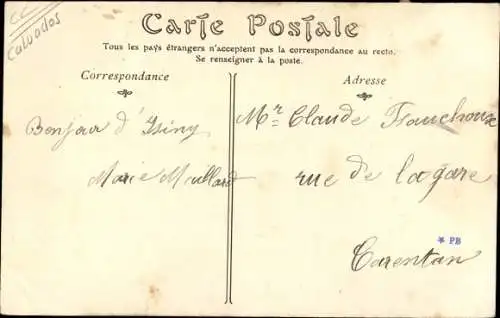 CC
Calvados
Carte Postale
Tous les pays étrangers n'acceptent pas la correspondance au recto.
Se renseigner à la poste.
Correspondance
Adresse
Bonjour d'Isiny
Marie Maillard
Mr Claude Franchoux
rue de la gare
* PB
Carentan